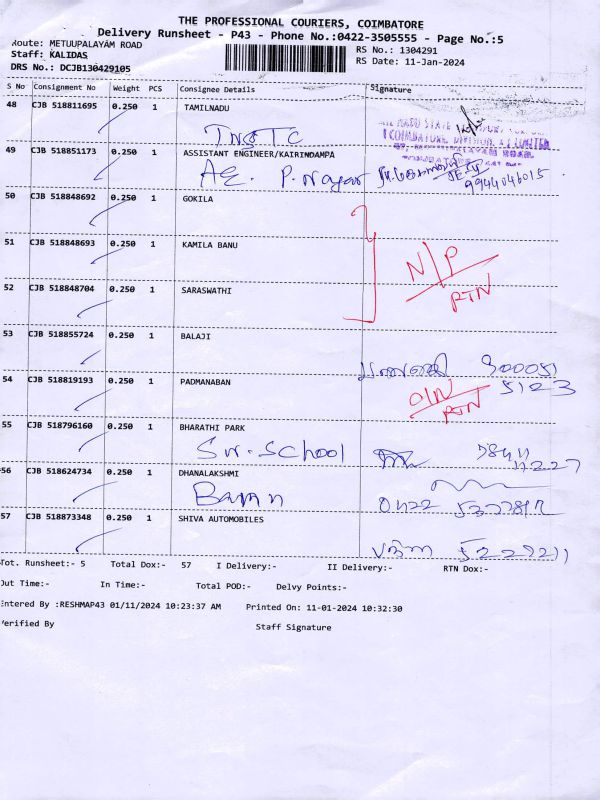 THE PROFESSIONAL COURIERS, COIMBATORE
Delivery Runsheet - P43 - Phone No.:0422-3505555 - Page No.:5
Route: METUUPALAYAM ROAD
Staff: KALIDAS
DRS No.: DCJB130429105
RS No.: 1304291
RS Date: 11-Jan-2024
S No Consignment No Weight PCS Consignee Details Signature
48 CJB 518811695 0.250 1 TAMILNADU
TNSTC
49 CJB 518851173 0.250 1 ASSISTANT ENGINEER/KAIRINDAMPA
AE P. Nagar 9944046015
50 CJB 518848692 0.250 1 GOKILA
51 CJB 518848693 0.250 1 KAMILA BANU
N/P
RTN
52 CJB 518848704 0.250 1 SARASWATHI
53 CJB 518855724 0.250 1 BALAJI
900051
5123
54 CJB 518819193 0.250 1 PADMANABAN
O/N
RTN
55 CJB 518796160 0.250 1 BHARATHI PARK
SW. School
56 CJB 518624734 0.250 1 DHANALAKSHMI
0422
57 CJB 518873348 0.250 1 SHIVA AUTOMOBILES
Tot. Runsheet:- 5 Total Dox:- 57 I Delivery:- II Delivery:- RTN Dox:-
Out Time:- In Time:- Total POD:- Delvy Points:-
Entered By :RESHMAP43 01/11/2024 10:23:37 AM Printed On: 11-01-2024 10:32:30
Verified By Staff Signature